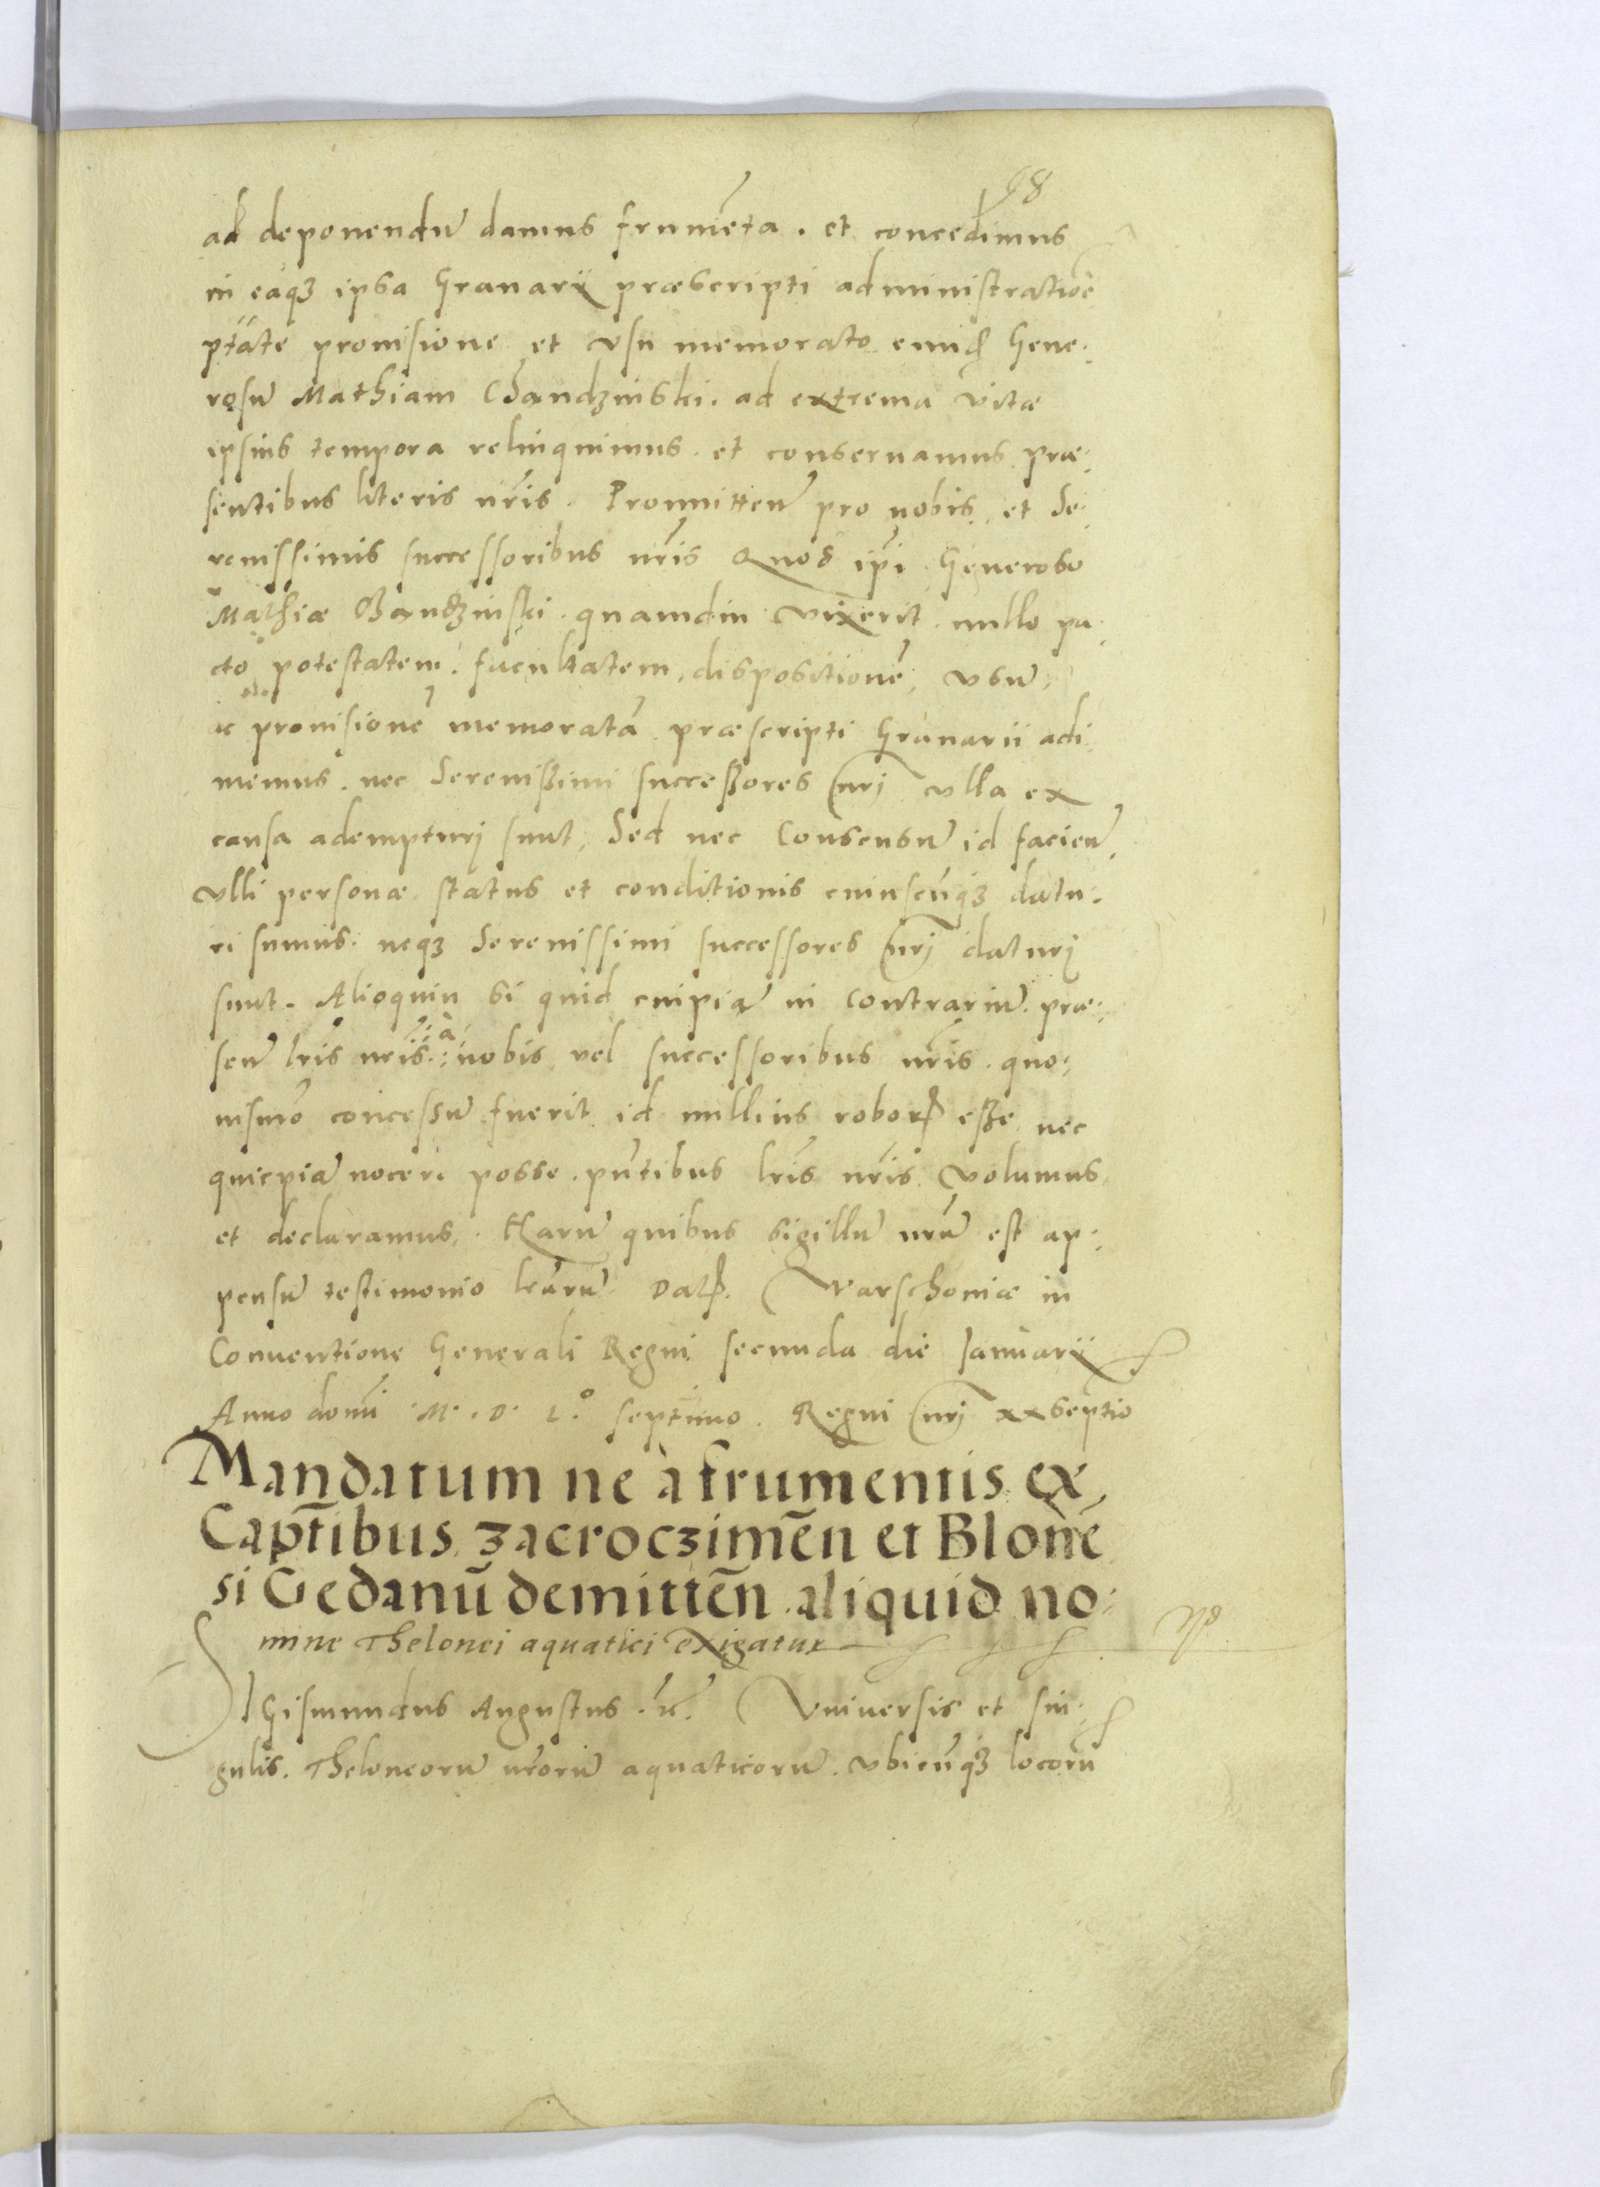 68
ad deponendū damus frumēta . et concedimus
in eāqꝫ ipsa Granarij præscripti administratiōē
ptāte prouisione et vsu memorato eund Gene:
rosū Mathiam Chandzinski . ad extrema vitæ
ipsius tempora relinquimus . et conseruamus præ:
sentibus literis nr̄is . Promitteñ pro nobis . et Se:
renissimis successoribus nr̄is Quod ip̄i Generoso
Mathiæ Chandzinski . quamdiu vixerit . nullo pa:
cto potestatem . facultatem, dispositionē, vsū,
ac prouisionē memoratā præscripti Granarii adi:
memus . nec Serenissimi successores nrj vlla ex
causa adempturj sunt, Sed nec Consensū id facieñ,
vlli personæ status et conditionis cuiuscūqꝫ datu:
ri sumus . neqꝫ Serenissimi successores nrj daturj
sunt . Alioquin si quid cuipiā in contrariū præ:
señ lr̄is nr̄is . à nobis vel successoribus nr̄is . quo:
uismō concessū fuerit id nullius robor esse nec
quicpiā nocere posse . pn̄tibus lr̄is nr̄is volumus
et declaramus . Harū quibus sigillū nrū est ap:
pensū testimonio lrārū Dat . Varschouiæ in
Conuentione Generali Regni secunda die Januarij
Anno domī . M . D . L .° septimo . Regni nrj xxseptīo
Mandatum ne à frumentis ex
Captībus zacroczimēn et Blonē
si Gedanū demittēn aliquid no:
mine Thelonei aquatici exigatur
SIGismundus Augustus . &c̄ . Vniuersis et sin:
gulis . Theloneorū nr̄orū aquaticorū . vbicūqꝫ locorū